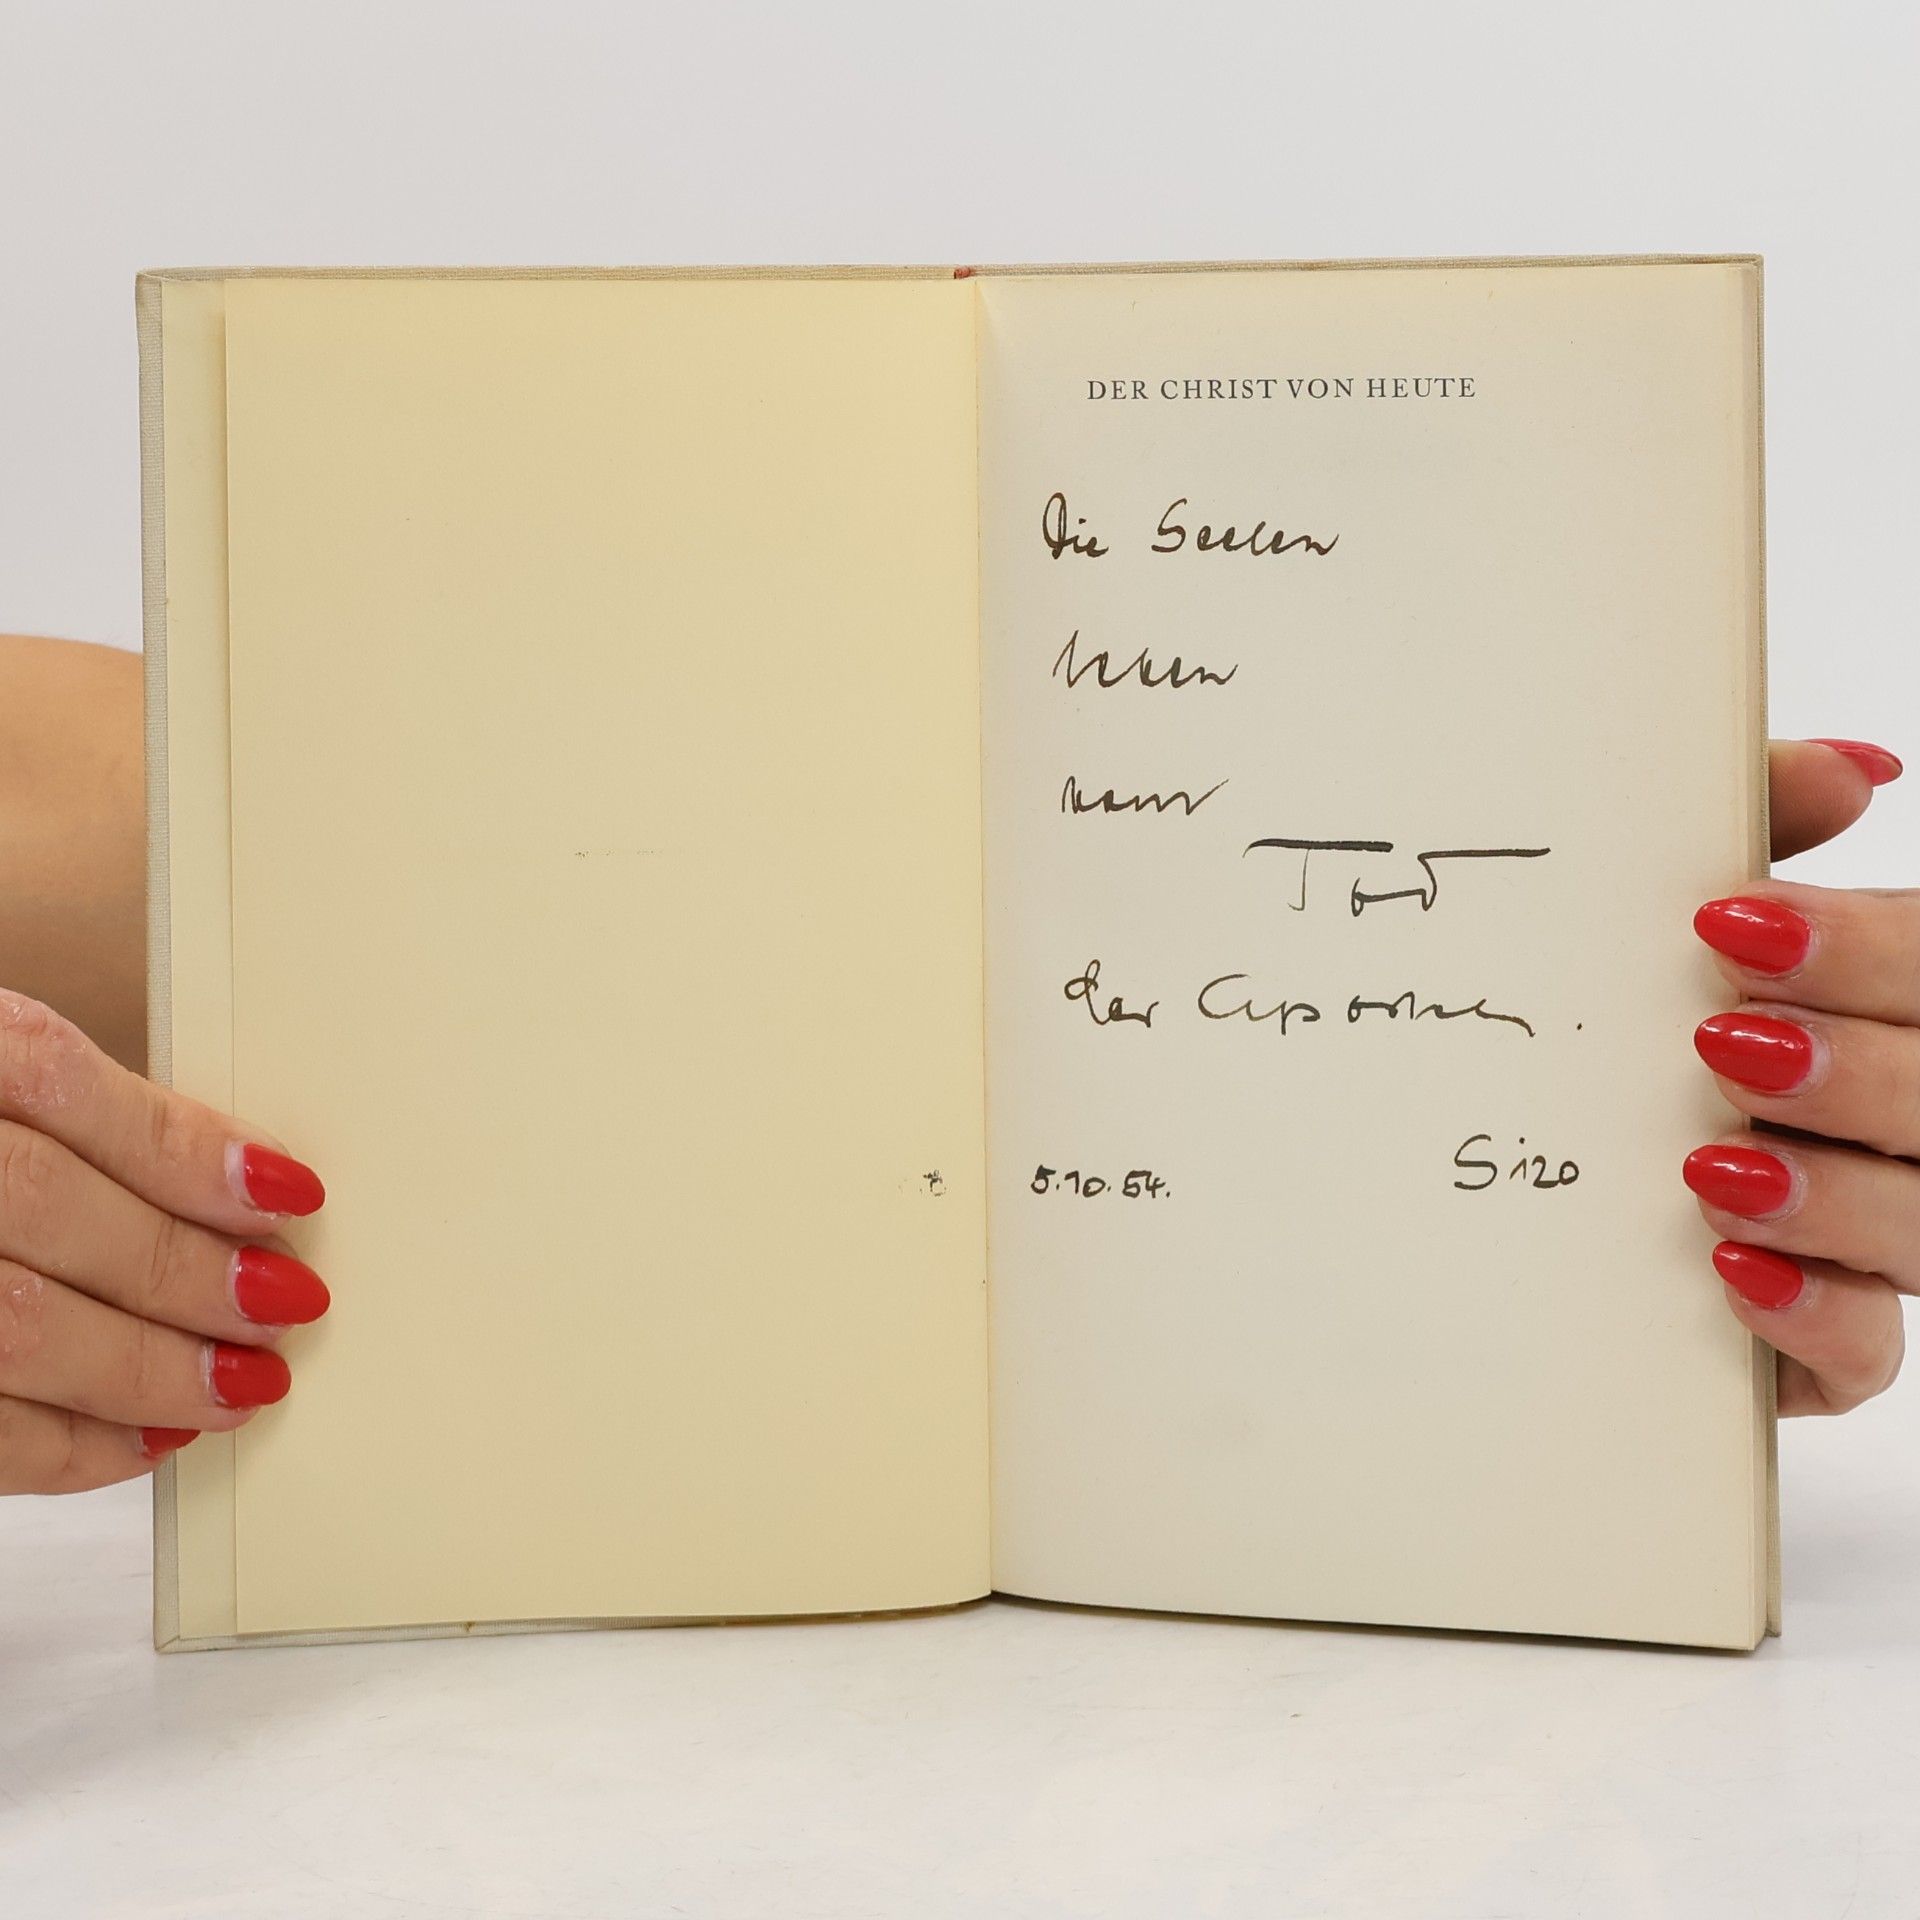 DER CHRIST VON HEUTE
Die Seelen
leben
vom
Tod
der Apostel.
5.10.54. Sizo